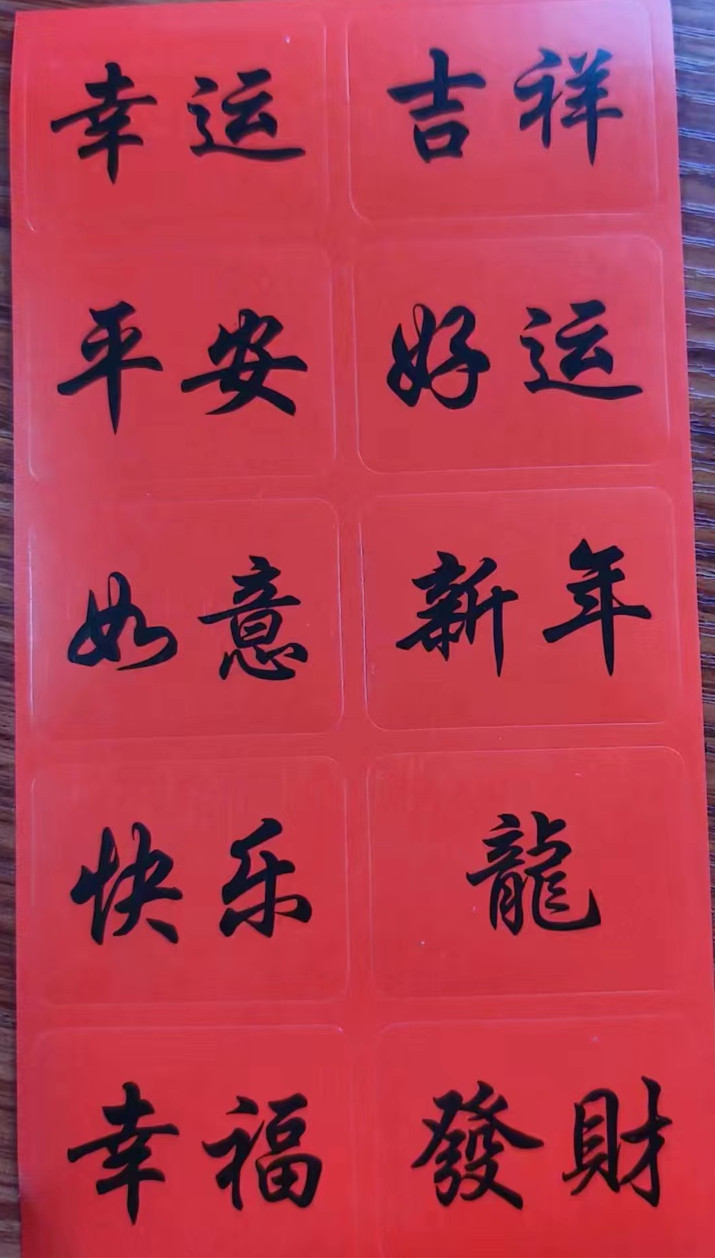 幸运 吉祥
平安 好运
如意 新年
快乐 龍
幸福 發財